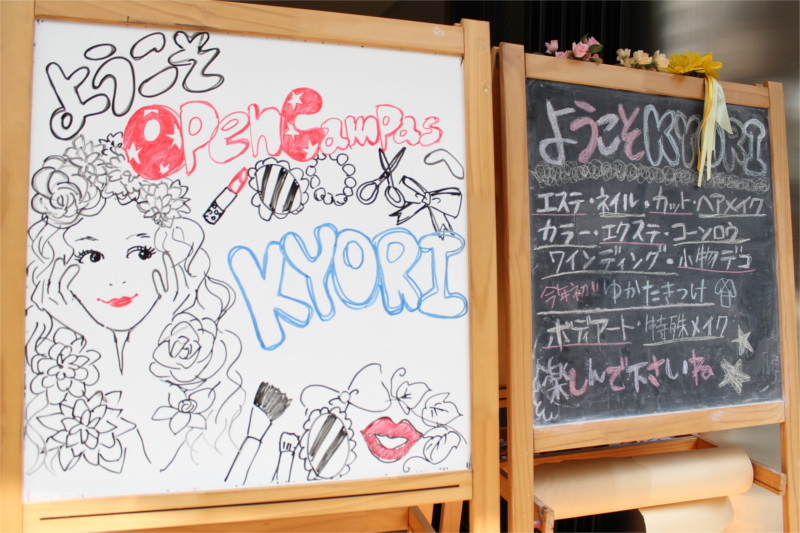 ようこそ
OPenCampas
KYORI
ようこそKYORI
エステ・ネイル・カット・ヘアメイク
カラー・エクステ・コーンロウ
ワインディング・小物デコ
今年初!!ゆかたきつけ
ボディアート・特殊メイク
楽しんで下さいね